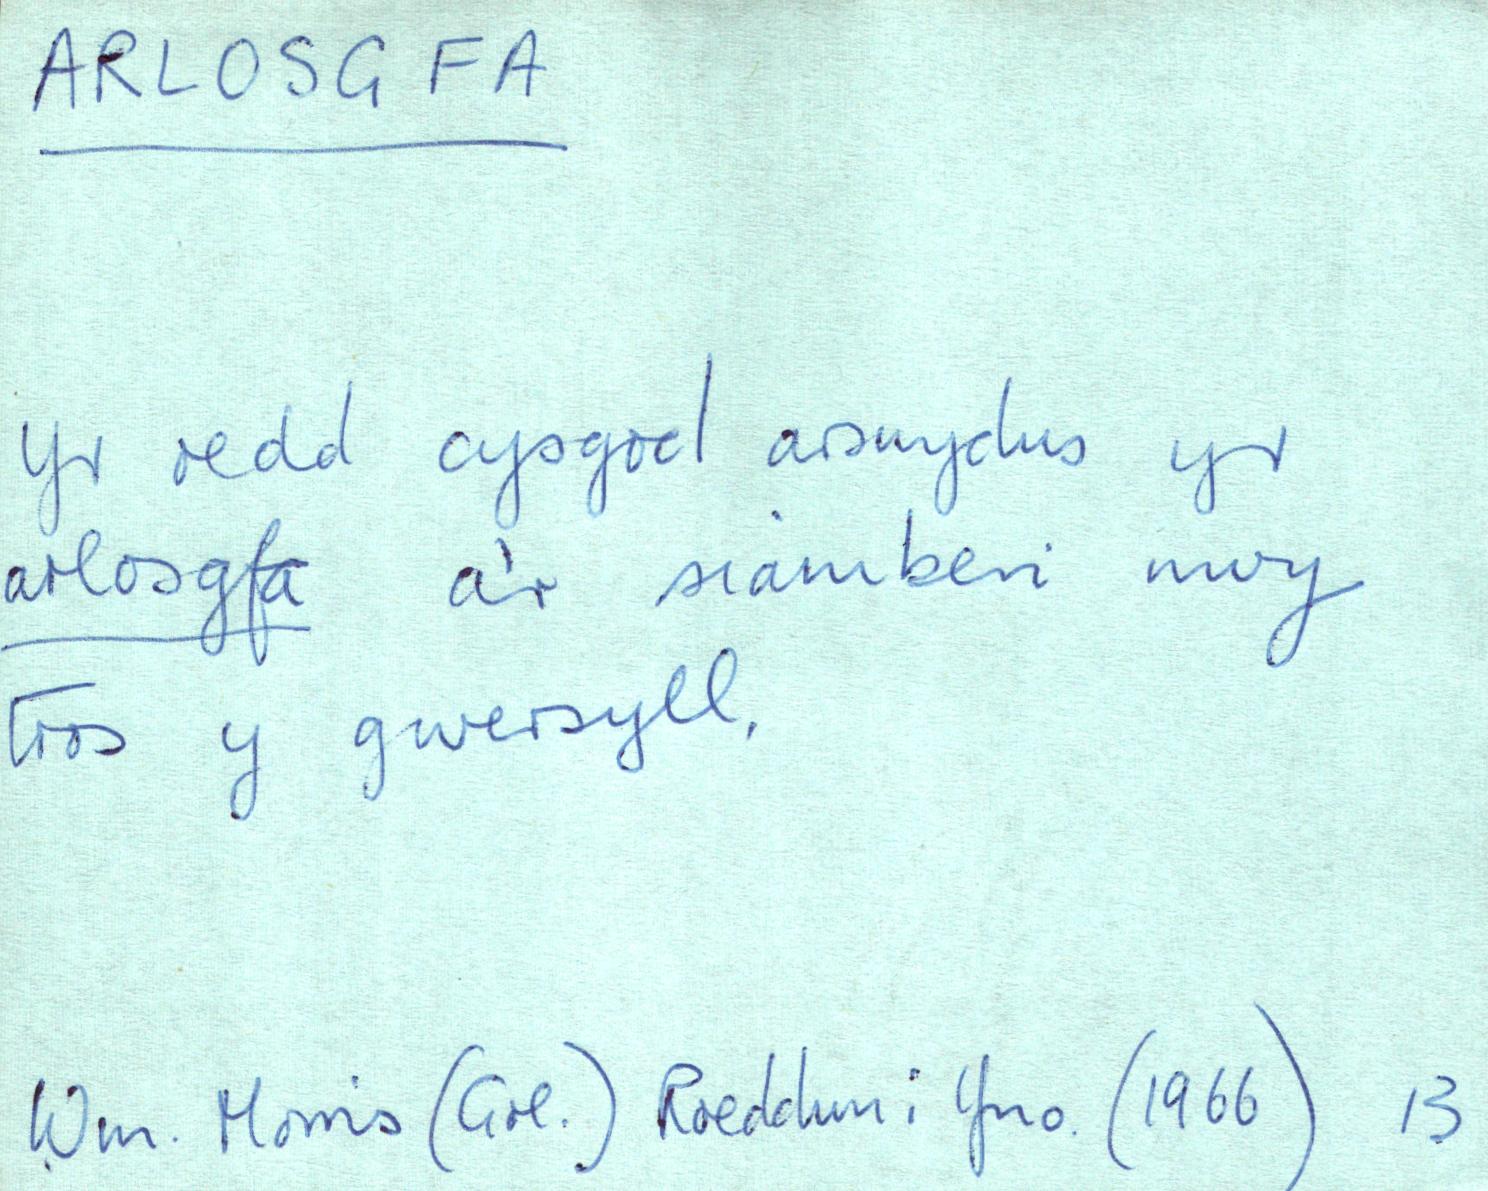 ARLOSGFA
Yr oedd cysgod arswydus yr
arlosgfa a'r siamberi nwy
tros y gwersyll.
Wm. Morris (Gol.) Roeddwn i Yno. (1966) 13